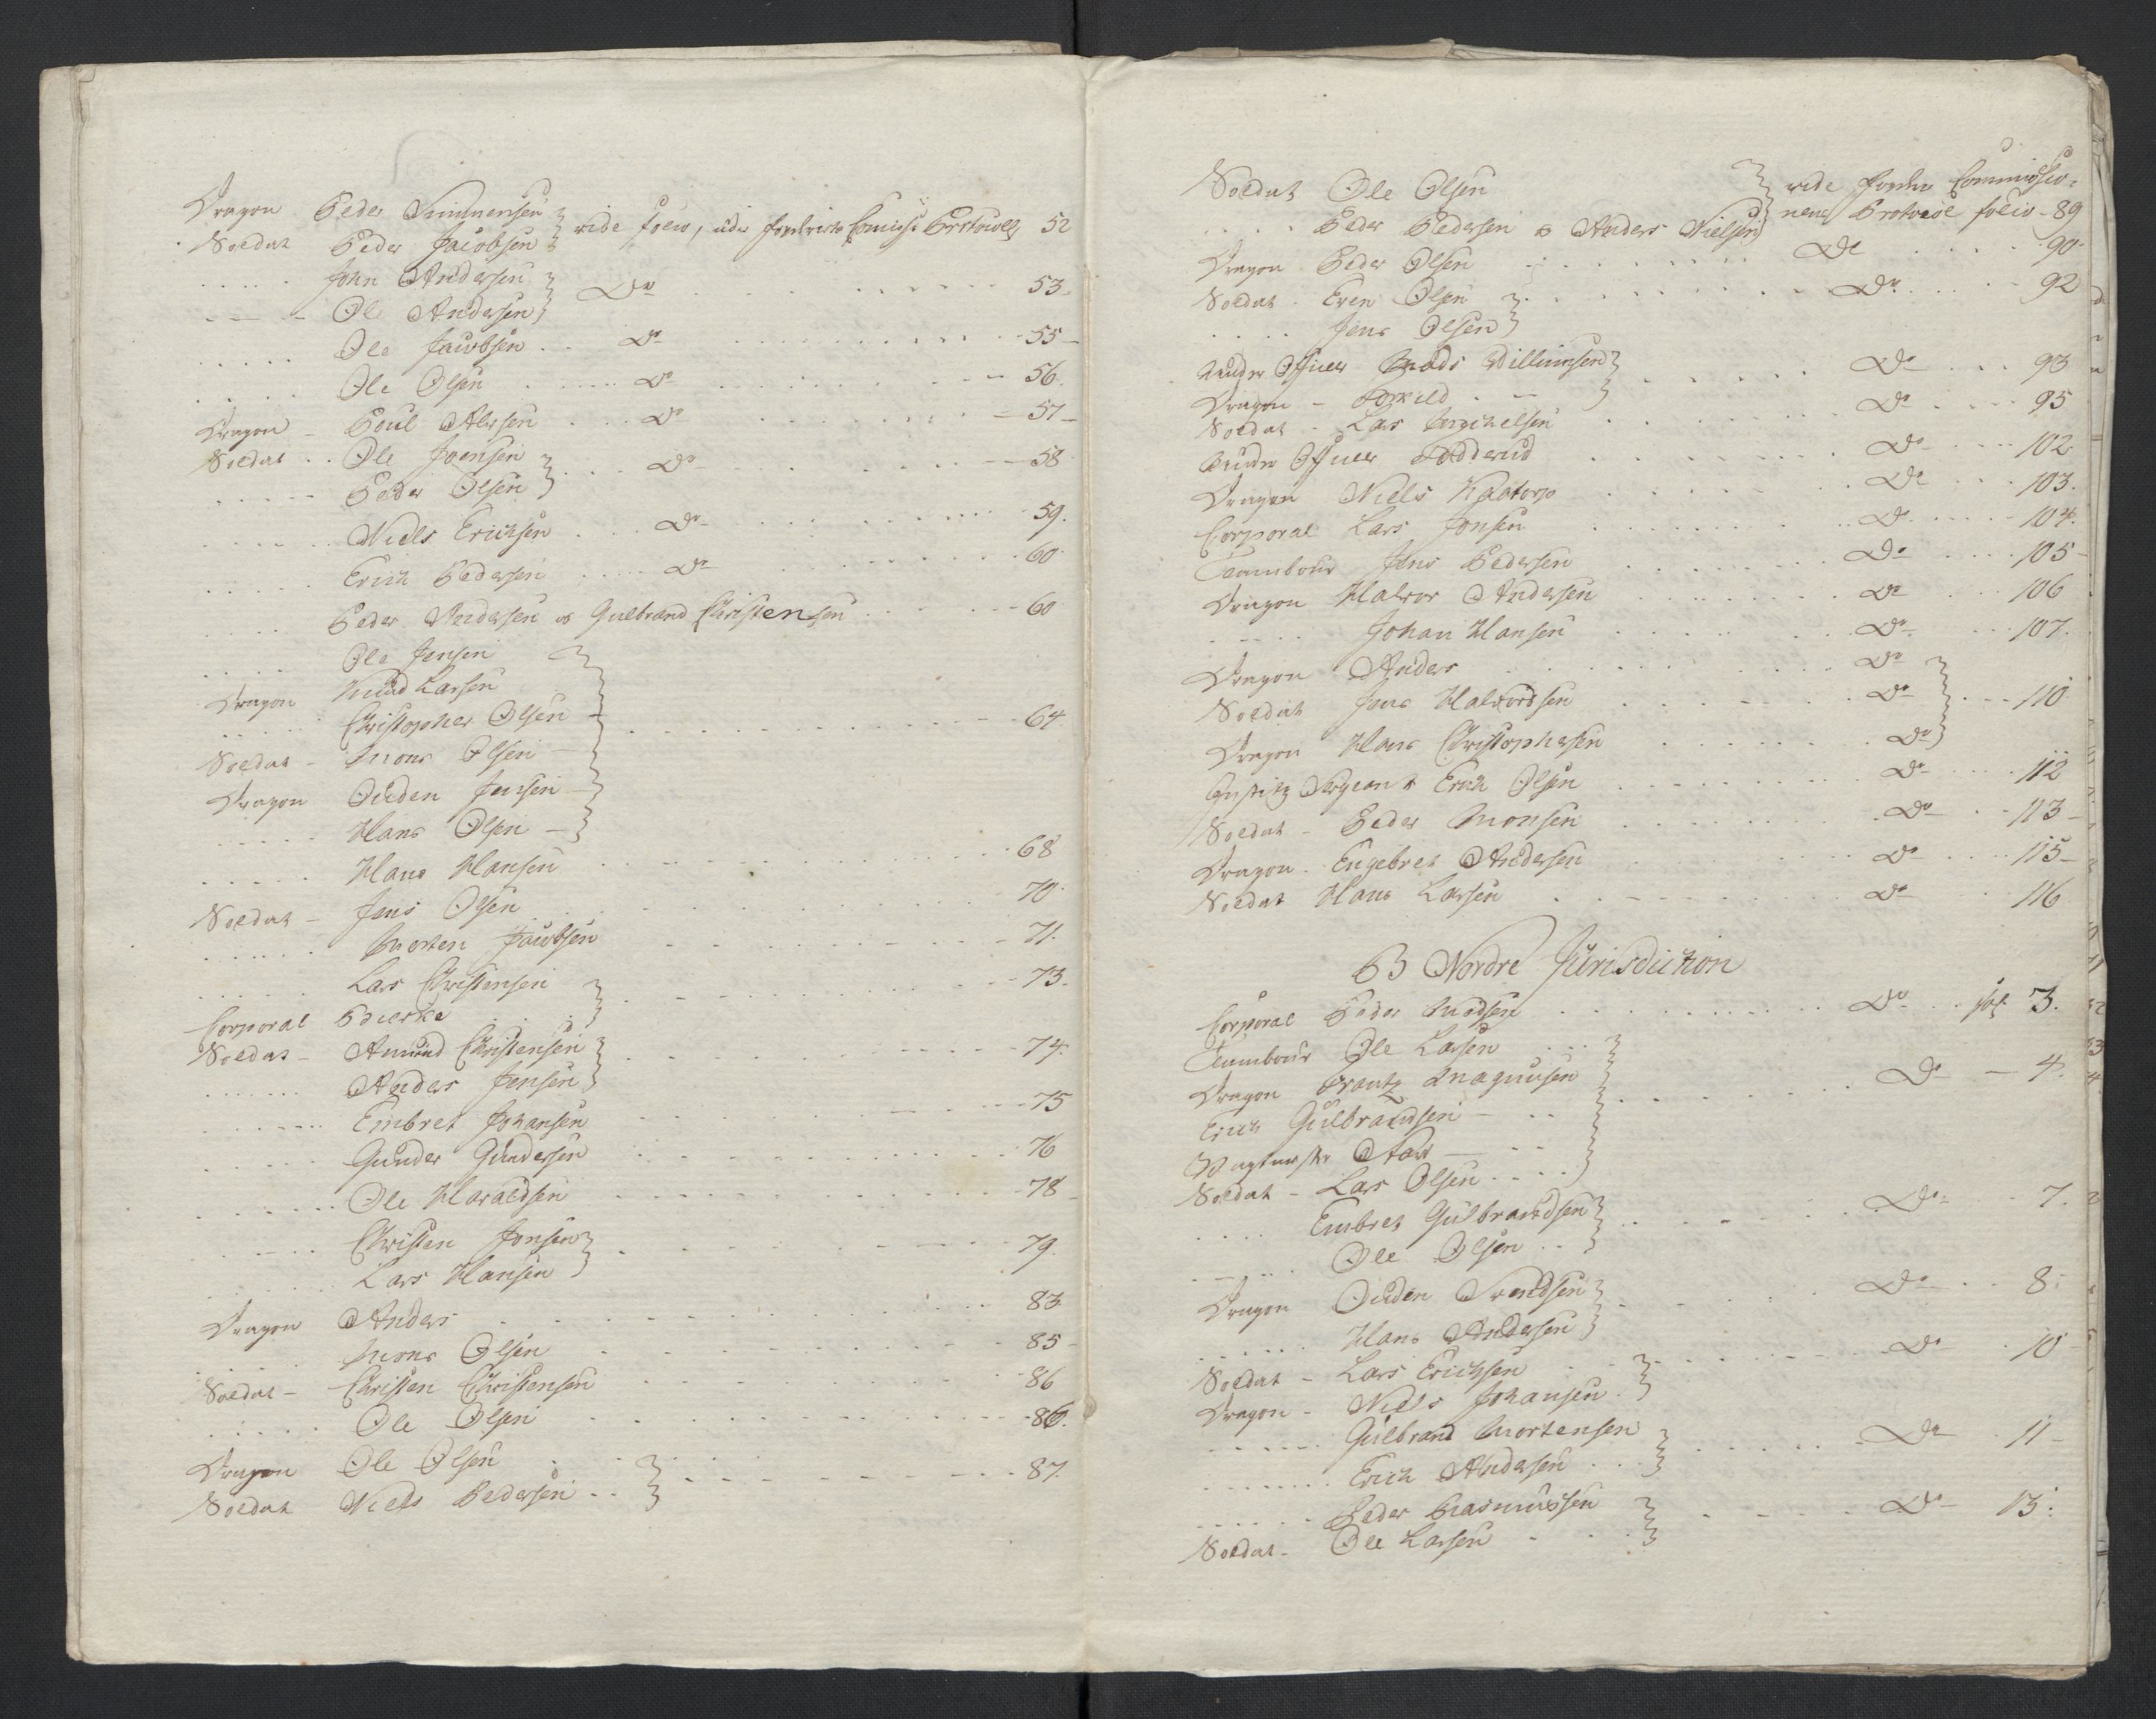 Dragon Peder Simmensen
Soldat Peder Jacobsen } vide folio, 52
..... John Andersen
..... Ole Andersen } Do ..... 53.
..... Ole Jacobsen .. Do ..... 55
..... Ole Olsen ..... Do ..... 56.
Dragon - Poul Alersen ... Do ..... 57
Soldat .. Ole Joensen
..... Peder Olsen } ... Do ..... 58
..... Niels Erichsen ... Do ..... 59.
..... Erich Pedersen .... Do ..... 60.
..... Peder Andersen og Gulbrand Christensen ..... 60
..... Ole Jensen
Dragon Knud Larsen
..... Christopher Olsen
Soldat - Mons Olsen
Dragon Ouden Jensen
..... Hans Olsen } ..... 64
..... Hans Hansen ..... 68
Soldat - Jens Olsen ..... 70.
..... Morten Jacobsen ..... 71.
..... Lars Christensen
Corporal } ..... 73.
Soldat - Amund Christensen
..... Anders Jensen } ..... 74.
..... Embret Johansen ..... 75
..... Gunder Gundersen ..... 76
..... Ole Haraldsen ..... 78
..... Christen Jonsen
..... Lars Hansen } ..... 79.
Dragon Anders ..... 83
..... Mons Olsen ..... 85
Soldat - Christen Christensen ..... 86
..... Ole Olsen ..... 86.
Dragon Ole Olsen
Soldat Niels Pedersen } ..... 87.
Soldat Ole Olsen
.... Peder Pedersen og Anders Nielsen } vide Commissio-
nens Protocol folio - 89
Dragon Peder Olsen ..... Do ..... 90
Soldat . Even Olsen
.... Jens Olsen } ..... Do ..... 92
Under Officer Mads Willumsen
Dragon - } ..... Do ..... 93
Soldat - Lars Michelsen ..... Do ..... 95
Under Officer ..... Do ..... 102
Dragon Niels ..... Do ..... 103.
Corporal Lars Jonsen ..... Do ..... 104.
Tambour Jens Pedersen ..... Do ..... 105
Dragon Halvor Andersen ..... Do ..... 106
..... Johan Hansen ..... Do ..... 107.
Dragon Anders ..... Do
Soldat Jens Halvordsen ..... Do
Dragon Hans Christophersen ..... Do } ..... 110
Sergeant Erich Olsen ..... Do ..... 112
Soldat - Peder Monsen ..... Do ..... 113
Dragon . Engebret Andersen ..... Do ..... 115
Soldat Hans Larsen ..... Do ..... 116
Nordre Jurisdiction
Corporal Peder Madsen ..... Do .. fol 3.
Tambour Ole Larsen
Dragon Frantz Magnusen
Erich Gulbrandsen
Wagtmester
Soldat - Lars Olsen } ..... Do - 4.
.... Embret Gulbrandsen
..... Ole Olsen } ..... Do ..... 7.
Dragon Ouden Svendsen
..... Hans Andersen } ..... Do ..... 8.
Soldat - Lars Erichsen
Dragon - Niels Johansen } ..... Do ..... 10
..... Gulbrand Mortensen
..... Erich Andersen } ..... Do ..... 11
..... Peder Rasmussen
Soldat - Ole Larsen } ..... Do ..... 13.